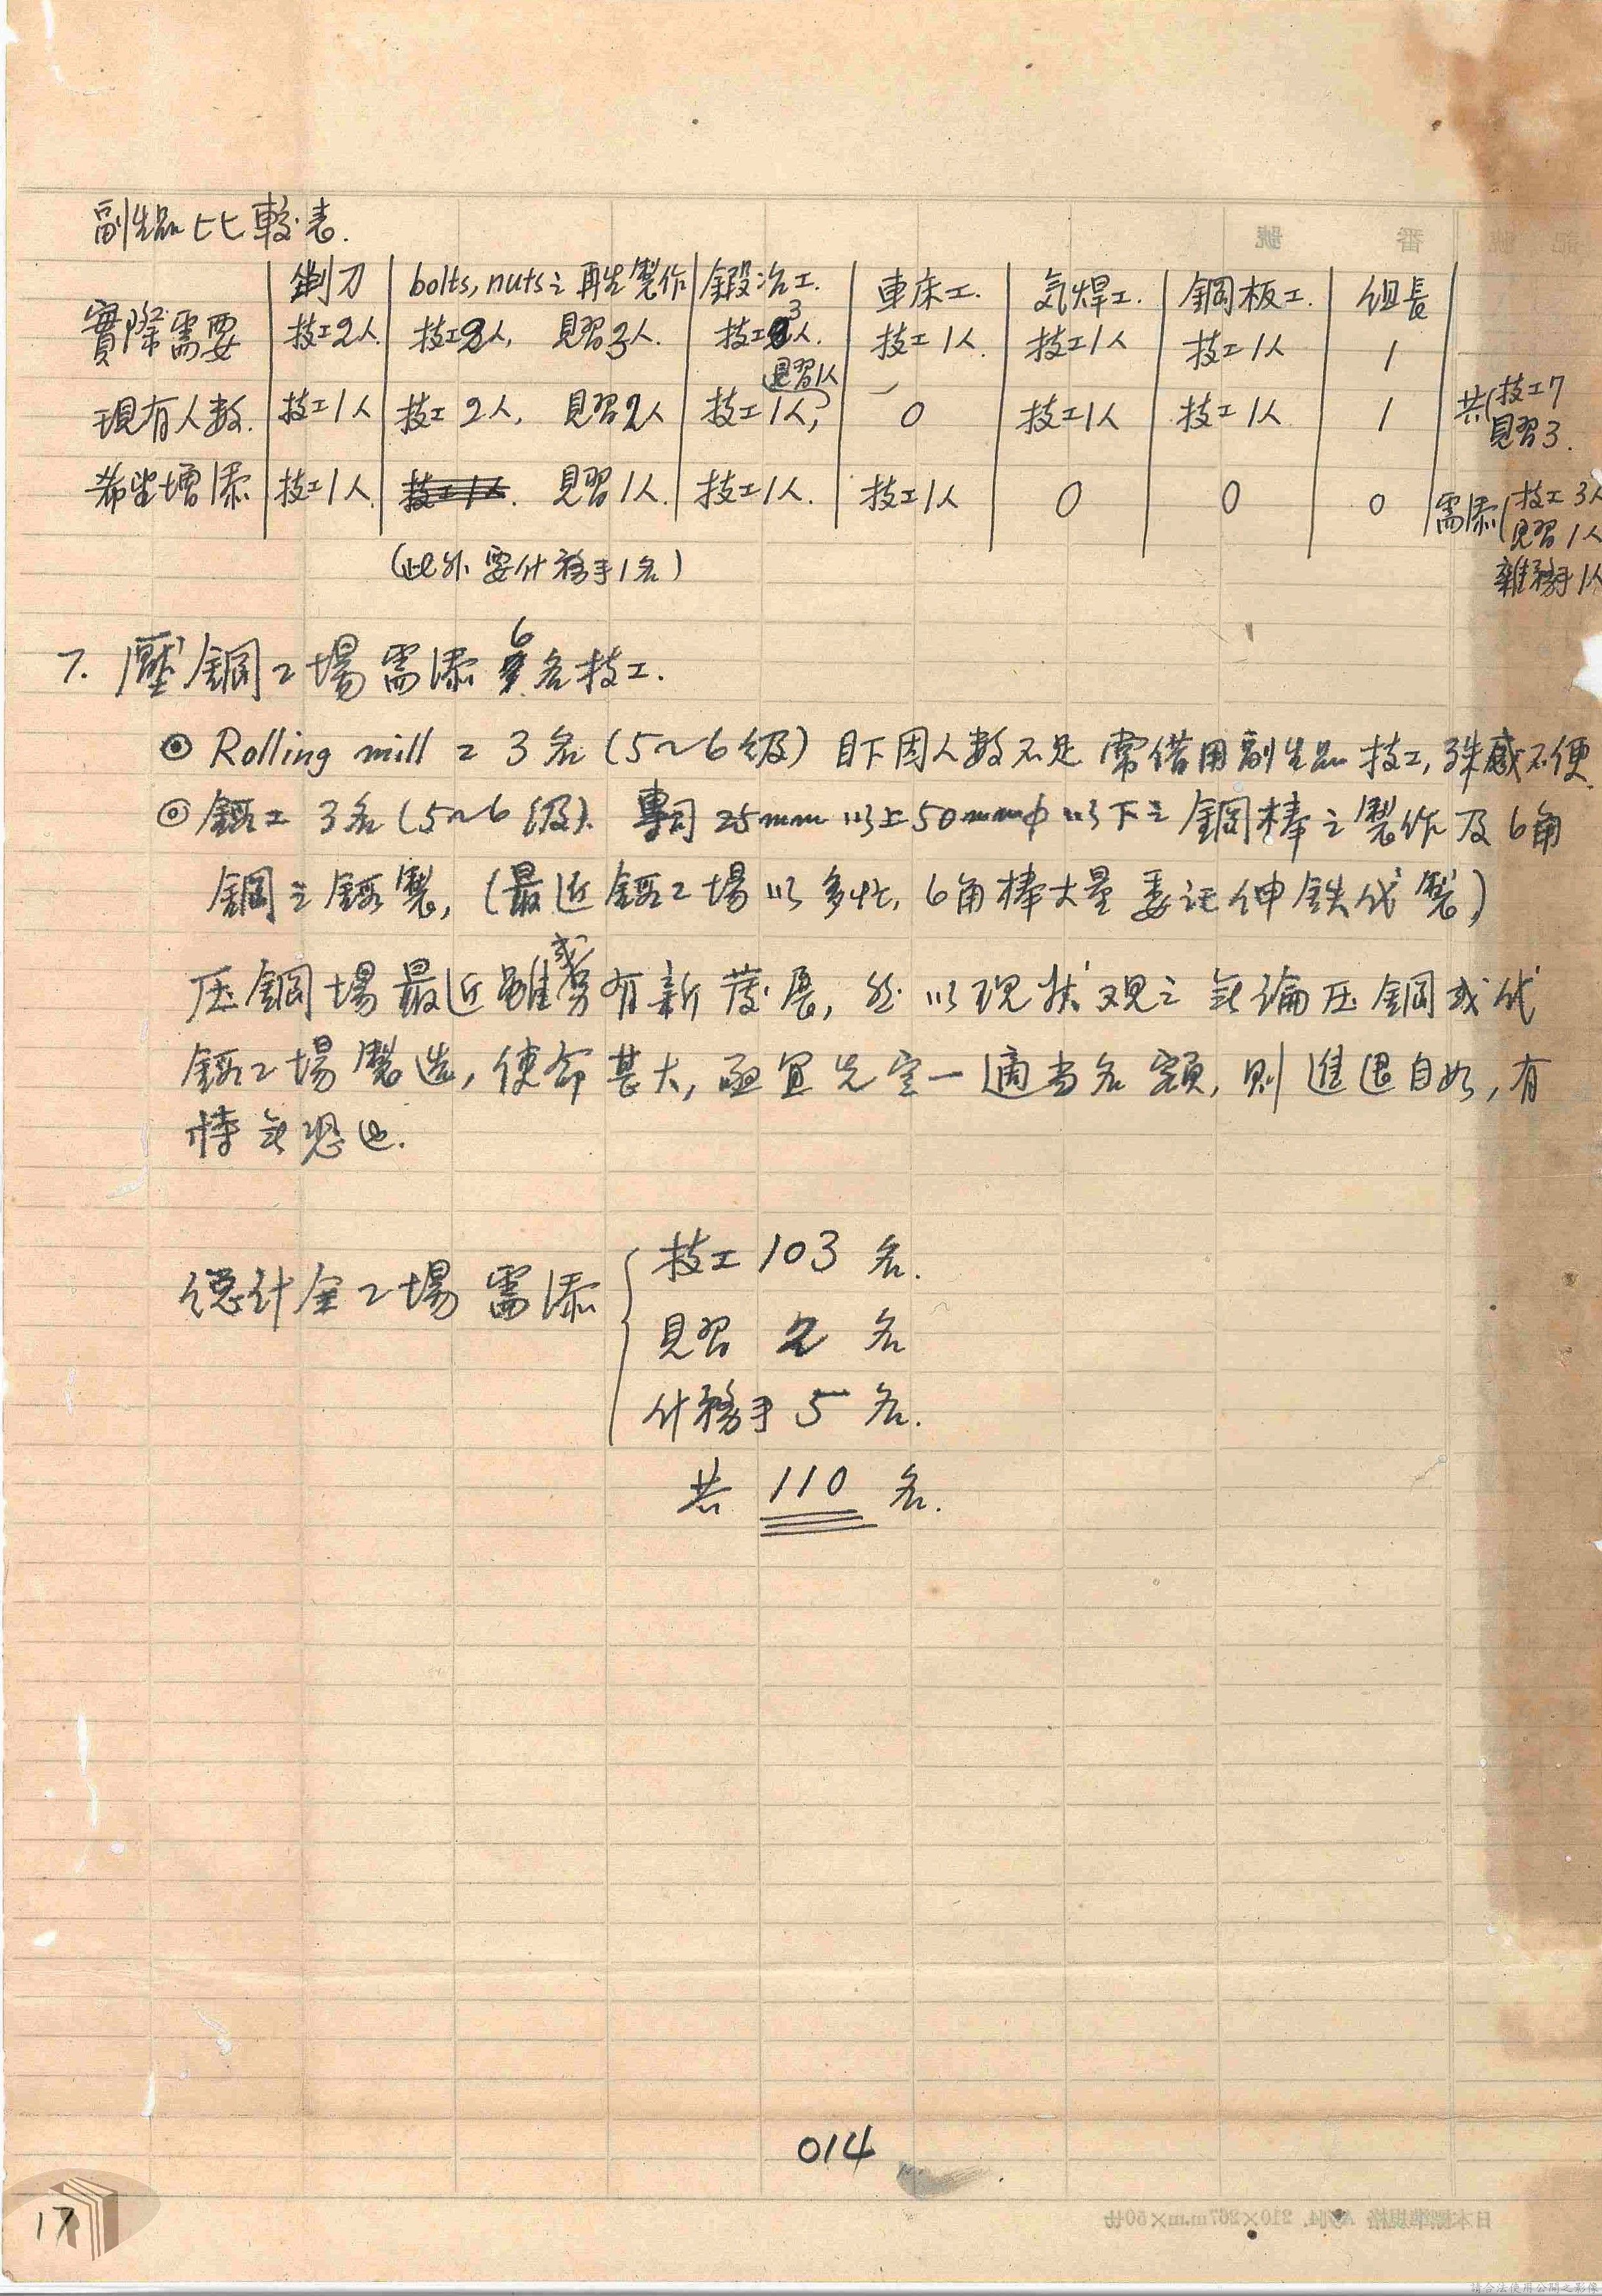 副生品比較表.
剃刀 bolts, nuts之再生製作 鍛冶工. 車床工. 気焊工. 鋼板工. 組長
實際需要 技工2人 技工2人, 見習3人. 技工3人. 技工1人. 技工1人 技工1人 1
見習1人
現有人数. 技工1人 技工2人, 見習2人 技工1人, 0 技工1人 技工1人 1 共(技工7
見習3.
希望增添 技工1人 見習1人. 技工1人. 技工1人 0 0 0 需添(技工3人
見習1人
(此外要什務手1名) 雜務手1人
7. 壓鋼工場需添6名技工.
◎ Rolling mill 工 3名(5~6級) 目下因人数不足 常借用副生品技工, 殊感不便.
◎ 鍛工 3名(5~6級). 專司25mm以上50mmφ以下之鋼棒之製作及6角
鋼之鍛製, (最近鍛工場以多忙, 6角棒大量委託伸鉄代製)
压鋼場最近雖或另有新發展, 然以現狀观之 無論压鋼或代
鍛工場製造, 使命甚大, 亟宜先定一適当名額, 則進退自如, 有
恃無恐也.
總計全工場需添 技工 103 名.
見習 2 名
什務手 5 名.
共 110 名.
014
日本標準規格 A列4. 210×297m.m×50
17
請合法使用公開之影像